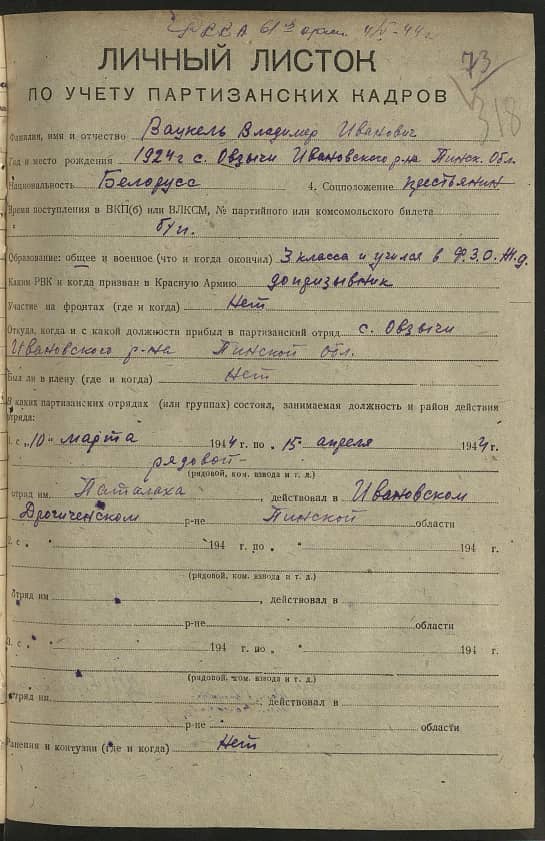 РККА 61й арм. 4/V-44г
73
318
ЛИЧНЫЙ ЛИСТОК
ПО УЧЕТУ ПАРТИЗАНСКИХ КАДРОВ
Фамилия, имя и отчество Ваукель Владимер Иванович
Год и место рождения 1924г с. Овзычи Ивановского р-на Пинск. Обл.
Национальность Белорусс 4. Соцположение крестьянин
Время поступления в ВКП(б) или ВЛКСМ, № партийного или комсомольского билета
б/п.
Образование: общее и военное (что и когда окончил) 3 класса и учился в Ф.З.О. Ж.д.
Каким РВК и когда призван в Красную Армию допризывник
Участие на фронтах (где и когда) Нет
Откуда, когда и с какой должности прибыл в партизанский отряд с. Овзычи
Ивановского р-на Пинской обл.
Был ли в плену (где и когда) Нет
В каких партизанских отрядах (или группах) состоял, занимаемая должность и район действия
отряда:
1. с „10" марта 1944 г. по „15 апреля 1944 г.
рядовой
(рядовой, ком. взвода и т. д.)
отряд им. Паталаха, действовал в Ивановском
Дрогиченском р-не Пинской области
2. с „ " 194 г. по „ " 194 г.
(рядовой, ком. взвода и т. д.)
Отряд им., действовал в
р-не области
3. с „ " 194 г. по „ " 194 г.
(рядовой, ком. взвода и т. д.)
отряд им., действовал в
р-не области
Ранения и контузии (где и когда) Нет